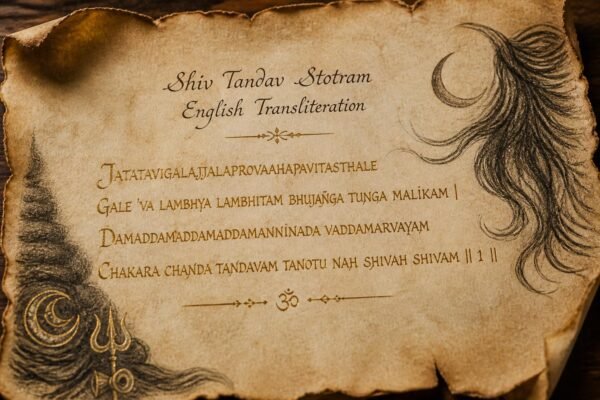 Shiv Tandav Stotram
English Transliteration
JATATAVIGALAJJALAPROVAAHAPAVITASTHALE
GALE 'VA LAMBHYA LAMBHITAM BHUJAÑGA TUNGA MALIKAM |
DAMADDAMADDAMADDAMANNINADA VADDAMARVAYAM
CHAKARA CHANDA TANDAVAM TANOTU NAH SHIVAH SHIVAM || 1 ||
ॐ